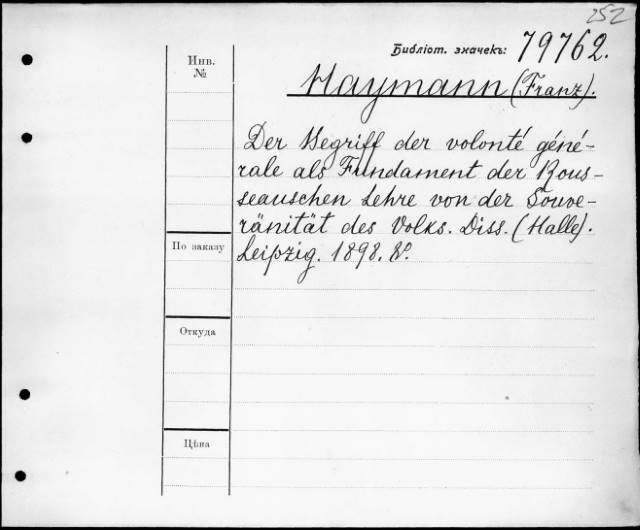 252
Библіот. значекъ: 79762.
Инв.
№
Haymann (Franz).
Der Begriff der volonté géné-
rale als Fundament der Rous-
seauschen Lehre von der Souve-
ränität des Volks. Diss. (Halle).
Leipzig. 1898. 8°.
По заказу
Откуда
Цѣна